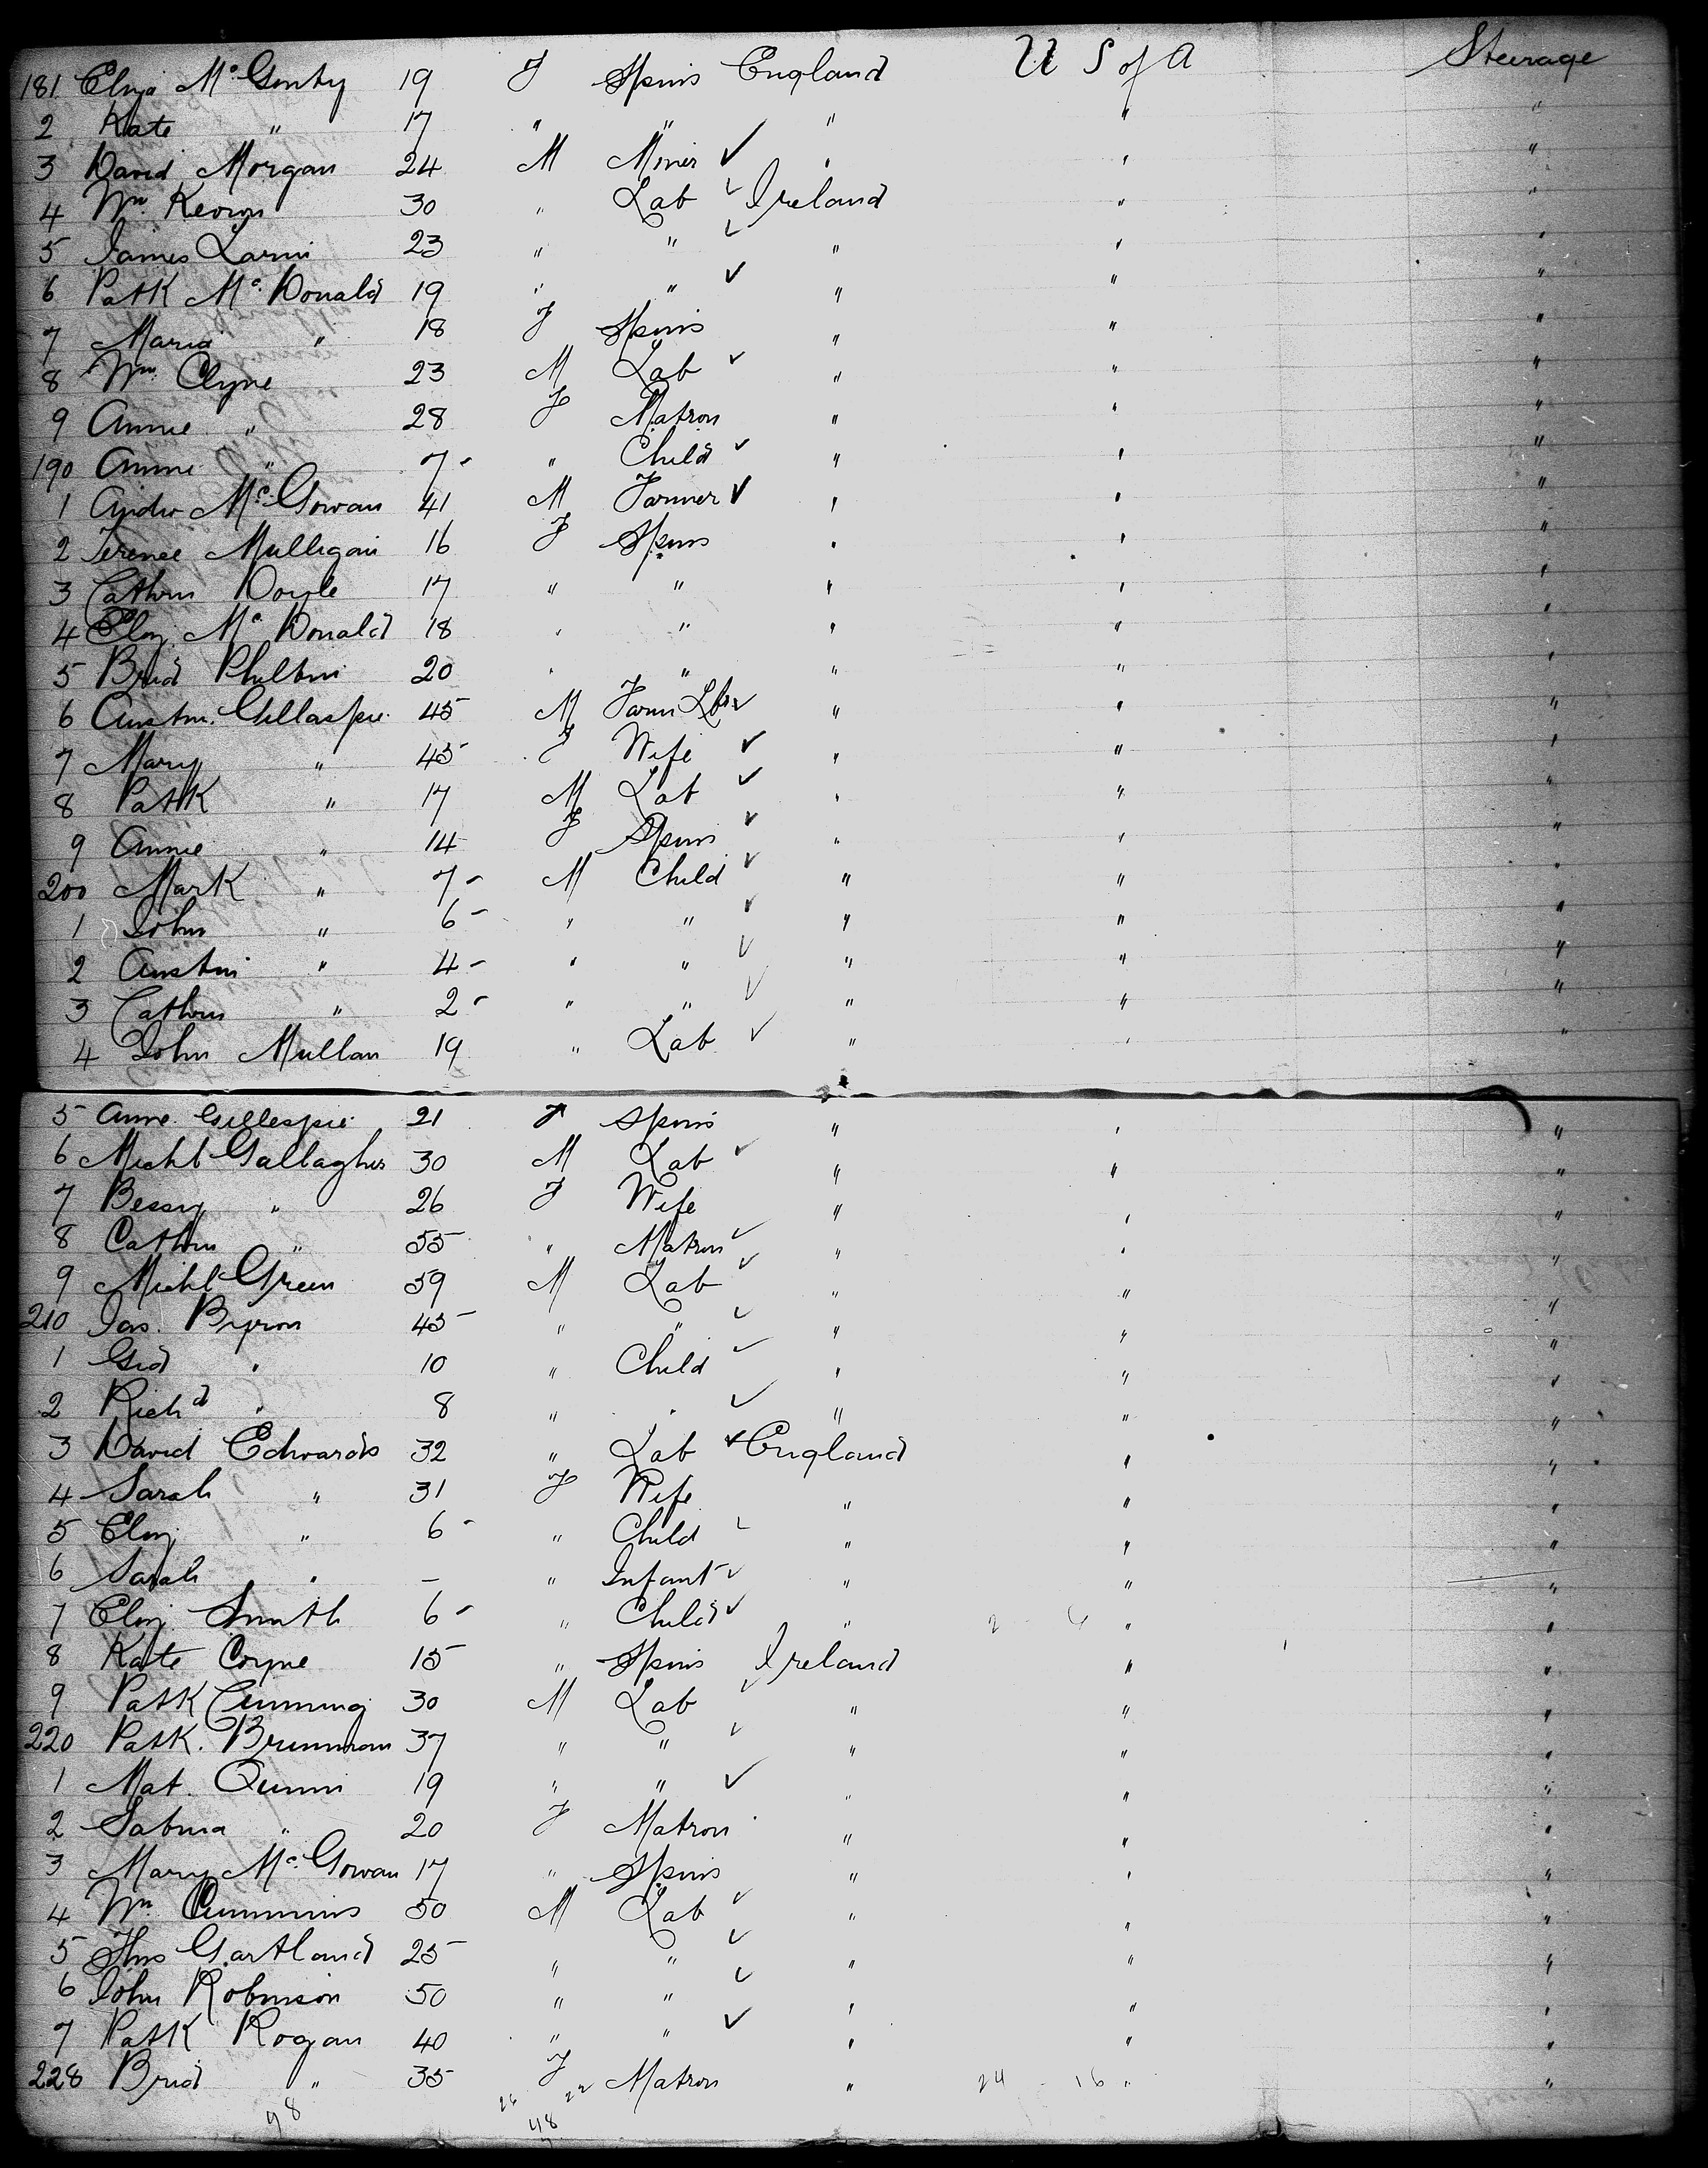 181 Eliza McGinty 19 F Spins England U S of A Steerage
2 Kate " 17 " " " " "
3 David Morgan 24 M Miner ✓ " " "
4 Wm Keown 30 " Lab ✓ Ireland " "
5 James Larni 23 " " ✓ " " "
6 Patk McDonald 19 " " ✓ " " "
7 Maria " 18 F Spins " " "
8 Wm Clyne 23 M Lab ✓ " " "
9 Annie " 28 F Matron " " "
190 Annie " 7- " Child ✓ " " "
1 Andw McGowan 41 M Farmer ✓ " " "
2 Terence Mulligan 16 F Spins " " "
3 Cathrn Doyle 17 " " " " "
4 Eliz McDonald 18 " " " " "
5 Brid Philbin 20 " " " " "
6 Austin Gillaspie 45 M Farm Lbr ✓ " " "
7 Mary " 45 F Wife ✓ " " "
8 Patk " 17 M Lab ✓ " " "
9 Annie " 14 F Spins ✓ " " "
200 Mark " 7- M Child ✓ " " "
1 John " 6- " " ✓ " " "
2 Austin " 4- " " ✓ " " "
3 Cathrn " 2- " " ✓ " " "
4 John Mullan 19 " Lab ✓ " " "
5 Anne Gillespie 21 F Spins " " "
6 Michl Gallagher 30 M Lab ✓ " " "
7 Bessy " 26 F Wife " " "
8 Cathrn " 55 " Matron ✓ " " "
9 Michl Green 39 M Lab ✓ " " "
210 Jas. Byron 45 " " ✓ " " "
1 " 10 " Child ✓ " " "
2 Richd " 8 " " ✓ " " "
3 David Edwards 32 " Lab ✓ England " "
4 Sarah " 31 F Wife " " "
5 Eliz " 6- " Child ✓ " " "
6 Sarah " - " Infant ✓ " " "
7 Eliz Smith 6- " Child ✓ " " "
8 Kate Coyne 15 " Spins Ireland " "
9 Patk Cumming 30 M Lab ✓ " " "
220 Patk. Brennan 37 " " ✓ " " "
1 Mat. Quinn 19 " " ✓ " " "
2 Sabina " 20 F Matron " " "
3 Mary McGowan 17 " Spins " " "
4 Wm Cummins 50 M Lab ✓ " " "
5 Thos Gartland 25 " " ✓ " " "
6 John Robinson 50 " " ✓ " " "
7 Patk Rogan 40 " " ✓ " " "
228 Brid " 35 F Matron " 24 - 16 " "
98 26 22 48